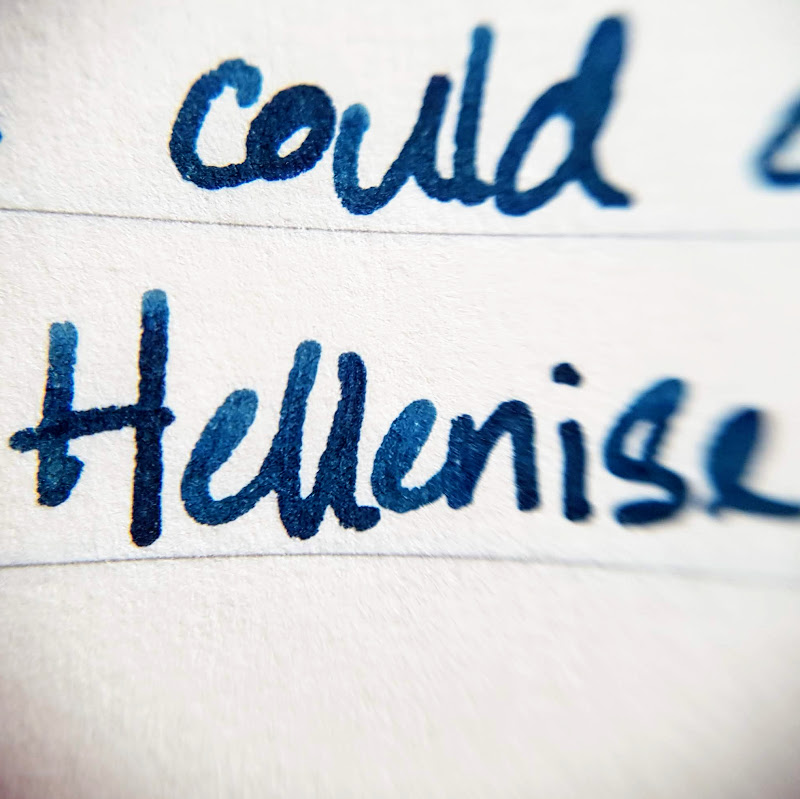 could
Hellenise